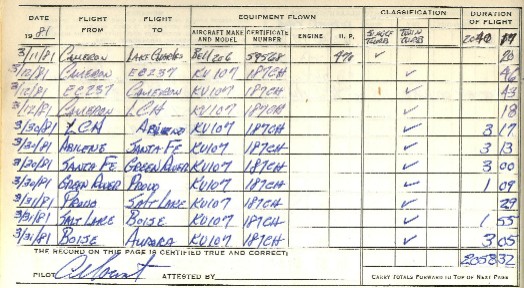 DATE 1981 FLIGHT FROM FLIGHT TO EQUIPMENT FLOWN CLASSIFICATION DURATION OF FLIGHT
AIRCRAFT MAKE AND MODEL CERTIFICATE NUMBER ENGINE H. P. SINGLE TURB TWIN TURB 2040 17
3/11/81 CAMERON LAKE CHARLES BELL206 59568 420 ✓ 20
3/12/81 CAMERON EC237 KV107 187CH ✓ 46
3/12/81 EC237 CAMERON KV107 187CH ✓ 43
3/12/81 CAMERON LCH KV107 187CH ✓ 18
3/30/81 LCH ABILENE KV107 187CH ✓ 3 17
3/30/81 ABILENE SANTA FE KV107 187CH ✓ 3 13
3/30/81 SANTA FE GREEN RIVER KV107 187CH ✓ 3 00
3/30/81 GREEN RIVER PROVO KV107 187CH ✓ 1 09
3/31/81 PROVO SALT LAKE KV107 187CH ✓ 29
3/31/81 SALT LAKE BOISE KV107 187CH ✓ 1 55
3/31/81 BOISE AURORA KV107 187CH ✓ 3 05
THE RECORD ON THIS PAGE IS CERTIFIED TRUE AND CORRECT: 2058 32
PILOT ATTESTED BY CARRY TOTALS FORWARD TO TOP OF NEXT PAGE